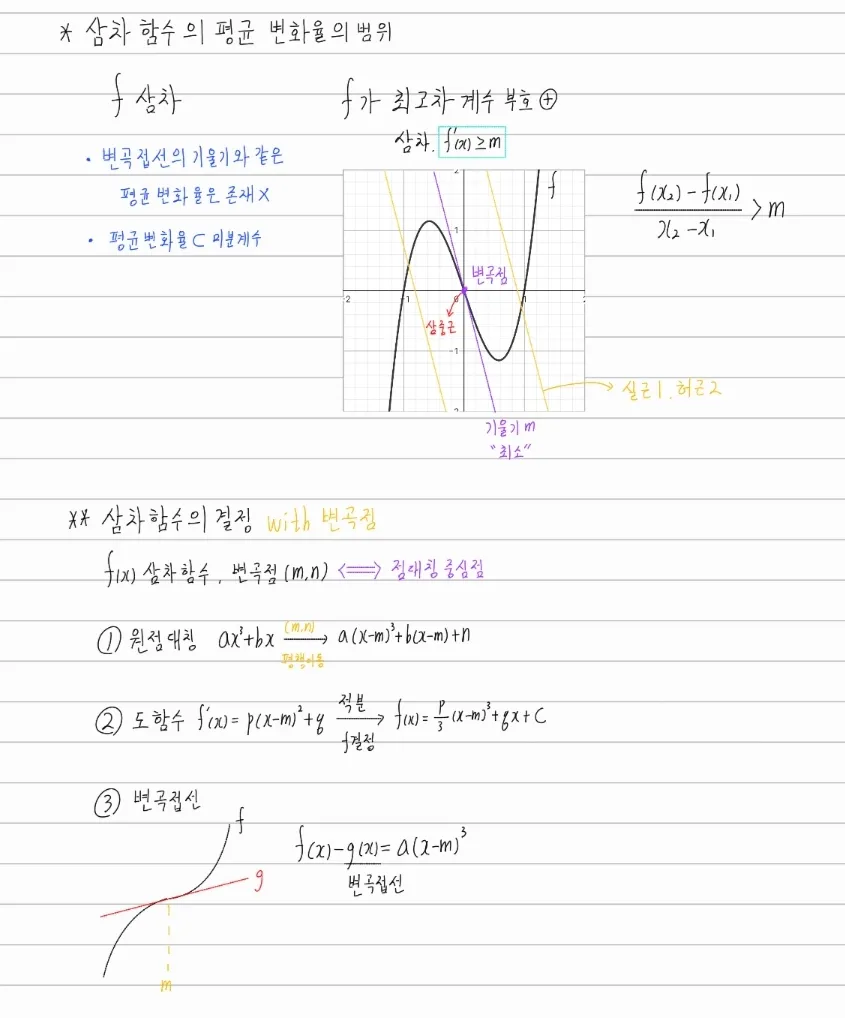 * 삼차 함수의 평균 변화율의 범위
f 삼차
• 변곡접선의 기울기와 같은
평균변화율은 존재 X
• 평균변화율 ⊂ 미분계수
f가 최고차 계수 부호 ⊕
삼차. f'(x) ≥ m
f
2
1
변곡점
2
1
0
1
2
삼중근
-1
2
실근1. 허근2
기울기 m
"최소"
f(x₂) - f(x₁) / x₂ - x₁ > m
** 삼차함수의 결정 with 변곡점
f(x) 삼차함수, 변곡점 (m,n) ⟺ 점대칭 중심점
① 원점대칭 ax³+bx (m,n) 평행이동 → a(x-m)³+b(x-m)+n
② 도함수 f'(x) = p(x-m)²+q 적분 f결정 → f(x) = p/3 (x-m)³+qx+C
③ 변곡접선
f
g
m
f(x)-g(x) = a(x-m)³
변곡접선